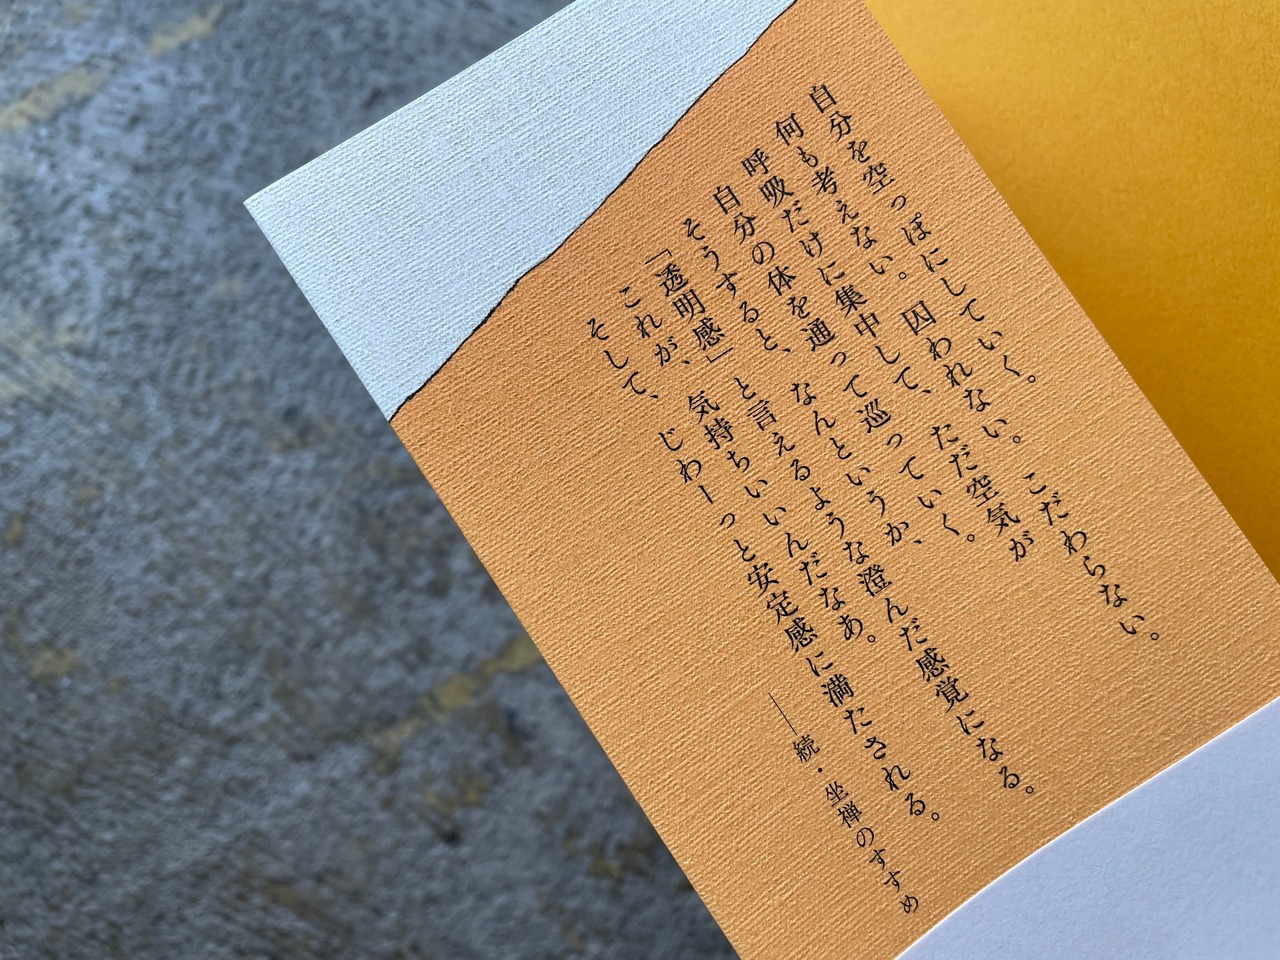 自分を空っぽにしていく。
何も考えない。囚われない。こだわらない。
呼吸だけに集中して、ただ空気が
自分の体を通って巡っていく。
そうすると、なんというか、
「透明感」と言えるような澄んだ感覚になる。
これが、気持ちいいんだなあ。
そして、じわーっと安定感に満たされる。
──続・坐禅のすすめ